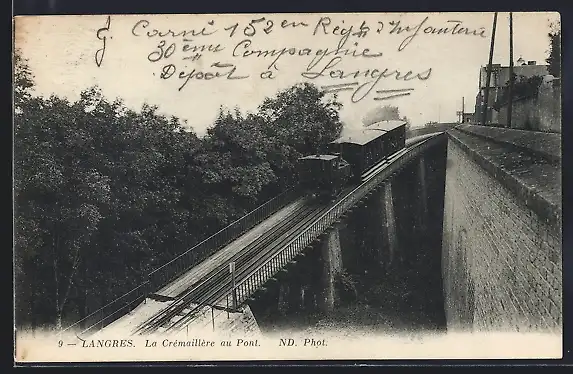 J. Carné 152 en Rég^t d'Infanterie
30ème Compagnie
Dépôt à Langres
9 — LANGRES. La Crémaillère au Pont. ND. Phot.